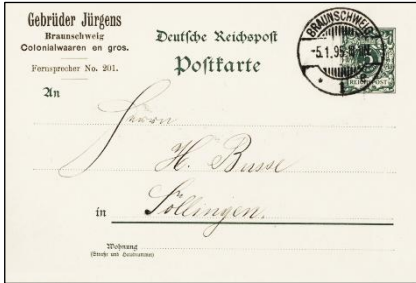 Gebrüder Jürgens
Braunschweig
Colonialwaaren en gros.
Fernsprecher No. 201.
Deutsche Reichspost
Postkarte
BRAUNSCHWEIG
-5.1.95
1
REICHSPOST
An
Herrn
H. Busse
in Söllingen.
Wohnung
(Straße und Hausnummer)